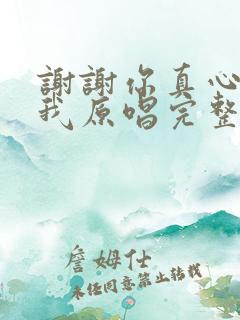 謝謝你真心
我原唱完整
詹姆仕
未经同意禁止转载